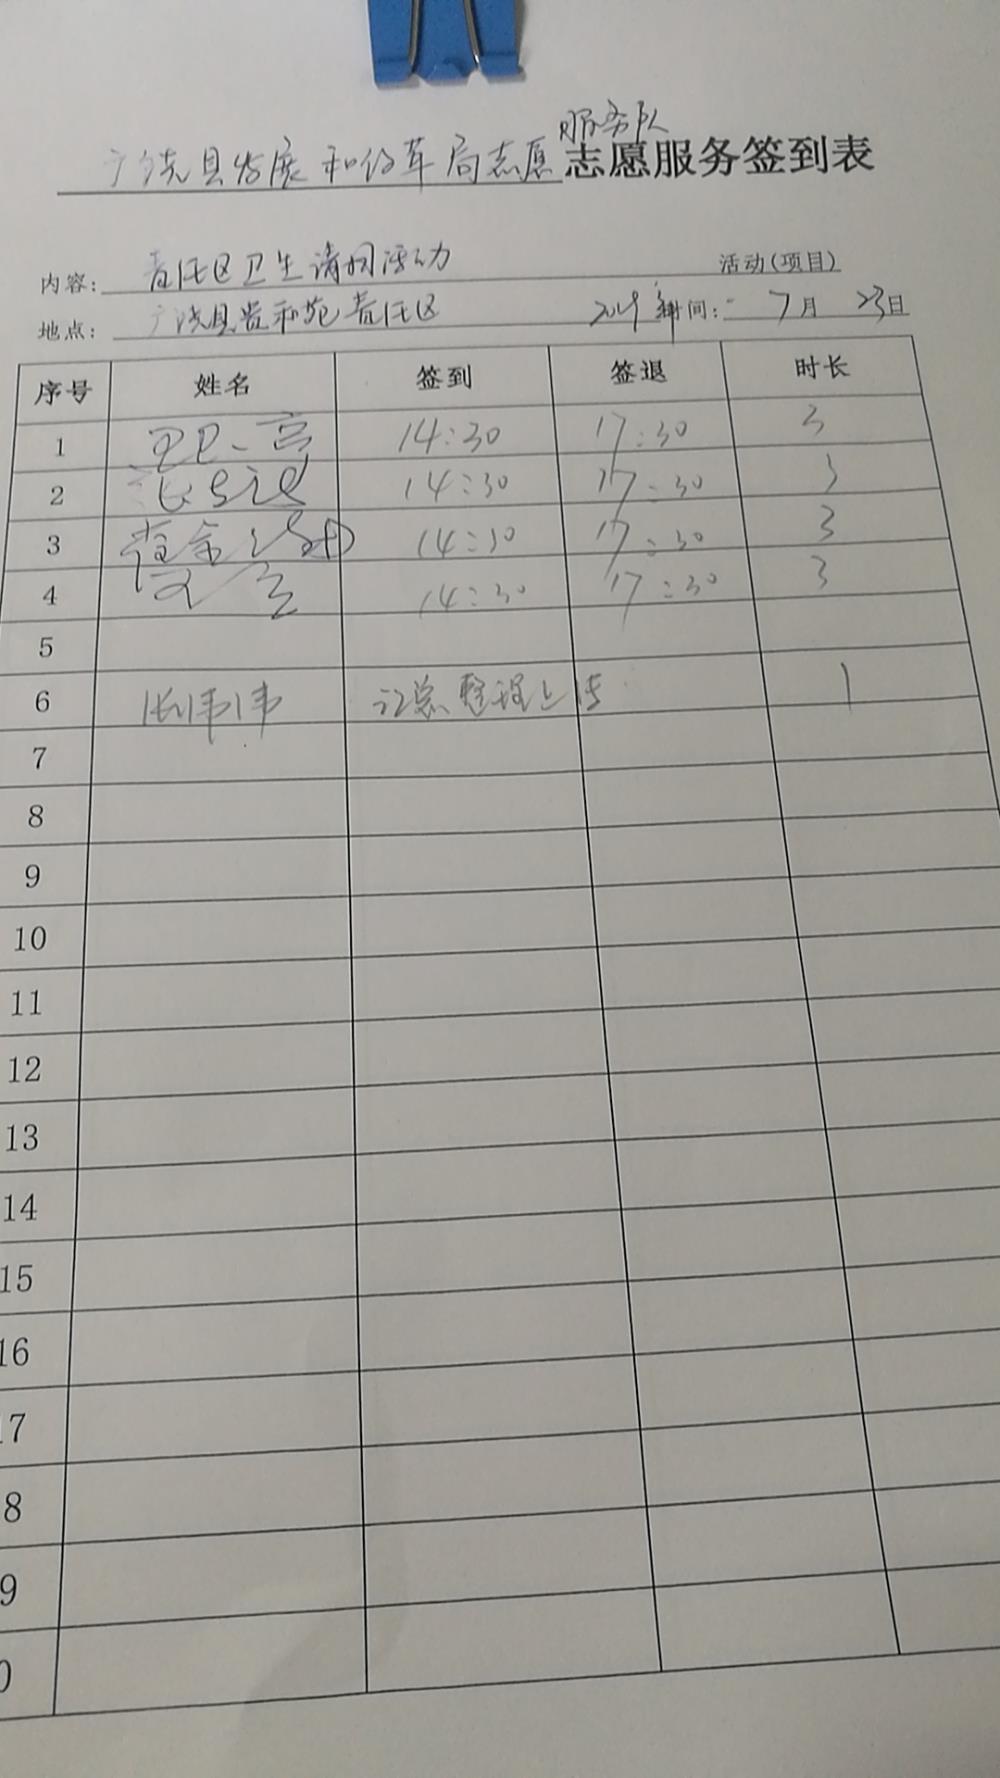 服务队
县发展和改革局志愿志愿服务签到表
内容: 责任区卫生清洁活动 活动(项目)
地点: 县贵和苑责任区 2019年 时间: 7月23日
序号 姓名 签到 签退 时长
1 14:30 17:30 3
2 14:30 17:30 3
3 14:30 17:30 3
4 14:30 17:30 3
5
6 张伟伟 记总整理上传 1
7
8
9
10
11
12
13
14
15
16
17
8
9
0